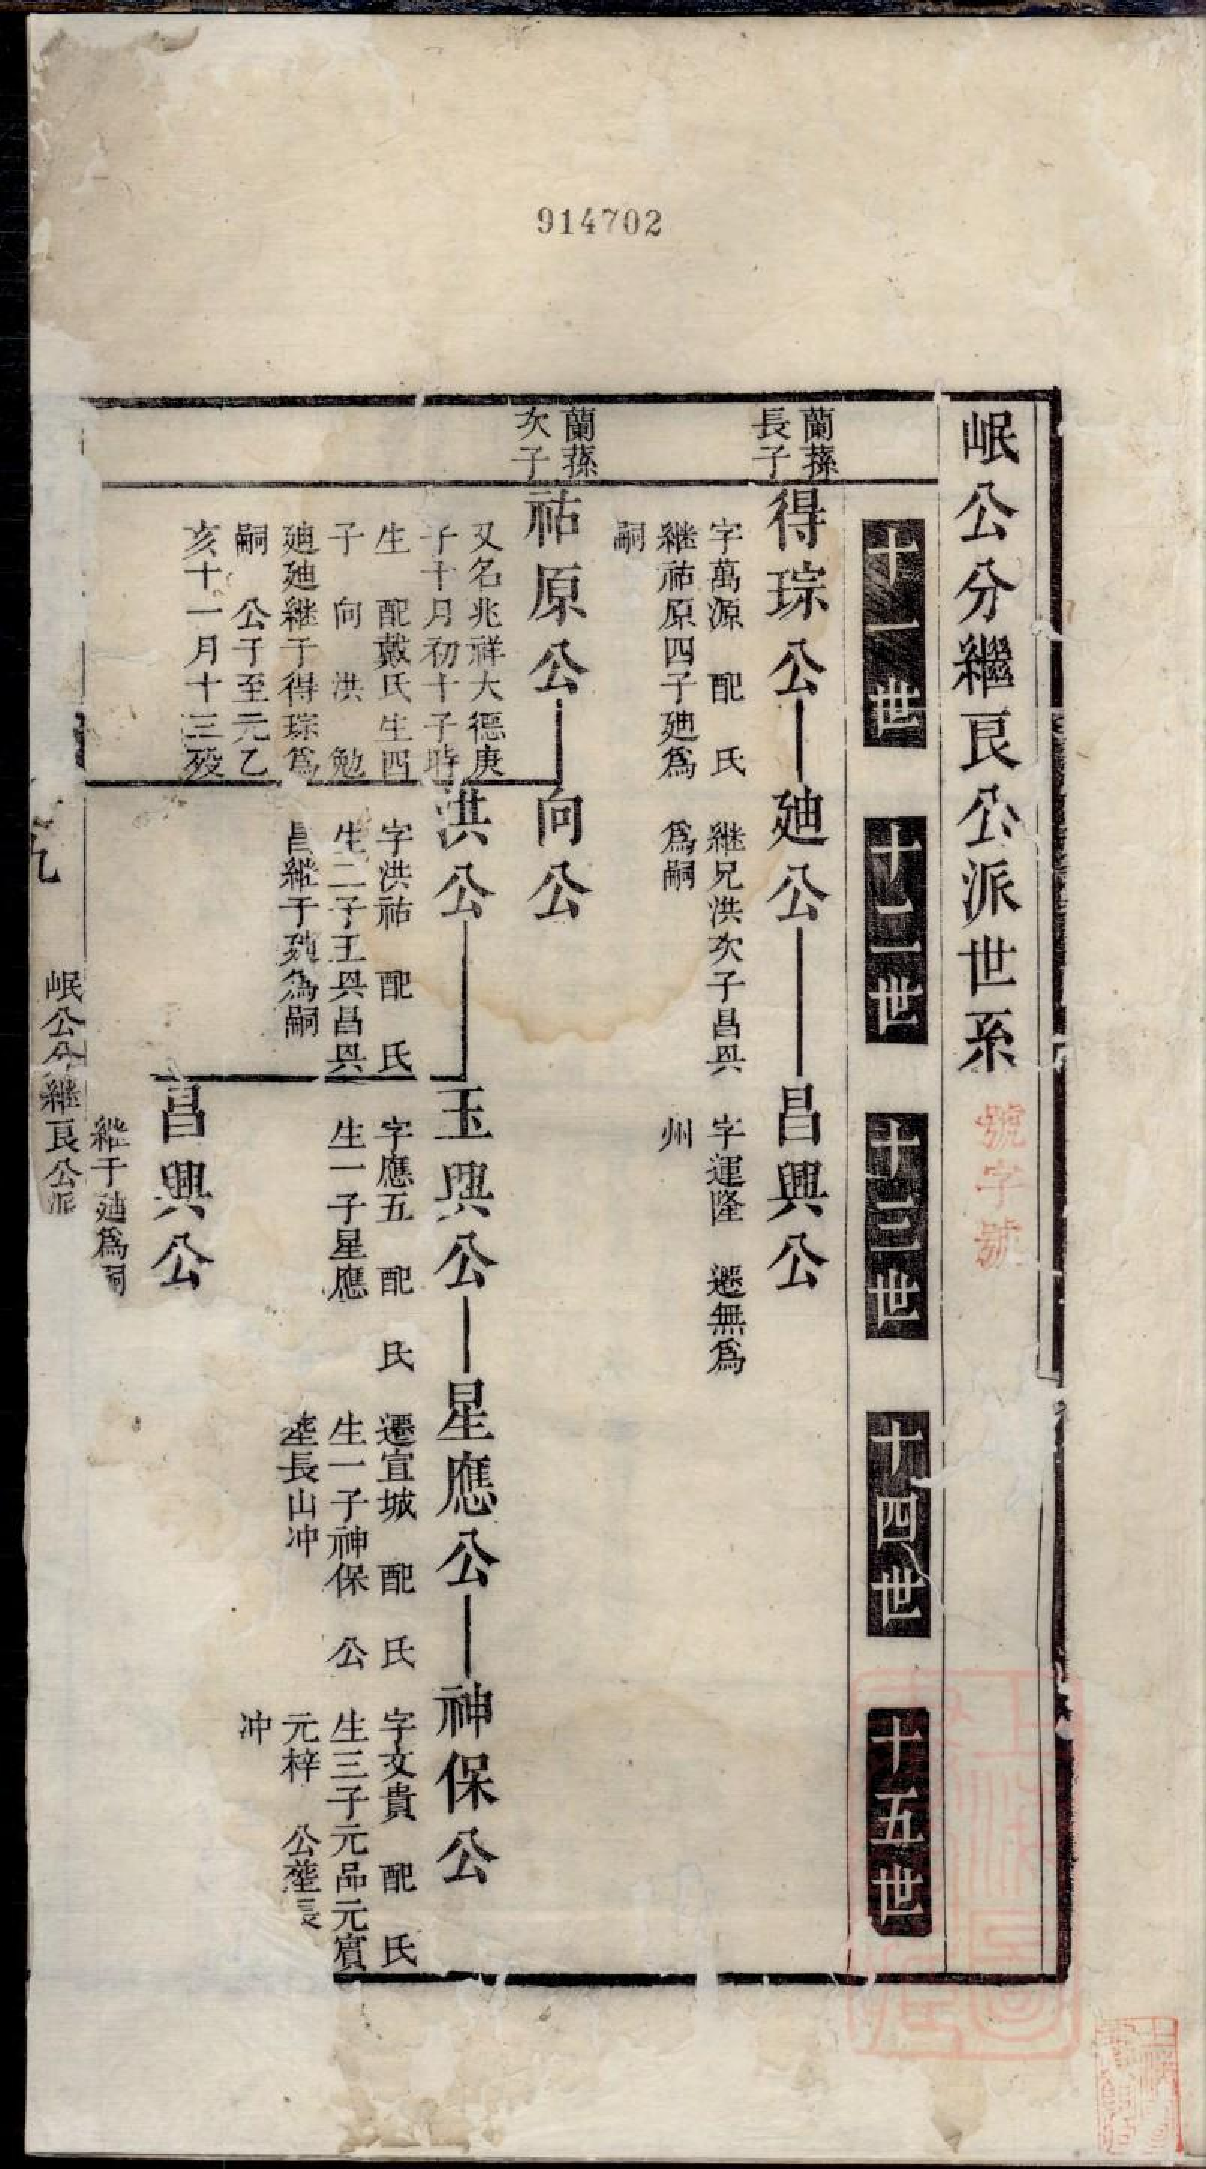 914702
岷公分繼艮公派世系
號字號
十一世
十二世
十三世
十四世
十五世
蘭蓀
長子
得琮公
字萬源 配 氏
継祐原四子廸爲
嗣
廸公
継兄洪次子昌㒷
爲嗣
昌興公
字運隆 遷無爲
州
蘭蓀
次子
祐原公
又名兆祥大德庚
子十月初十子時
生 配戴氏生四
子 向 洪 勉
廸廸継于得琮爲
嗣 公于至元乙
亥十一月十三歿
向公
洪公
字洪祐 配 氏
生二子玉㒷昌㒷
昌継于廸為嗣
玉興公
字應五 配 氏
生一子星應
星應公
遷宣城 配 氏
生一子神保 公
塟長山冲
神保公
字文貴 配 氏
生三子元品元賓
元梓 公塟長
冲
昌興公
継于廸爲嗣
九
岷公分継艮公派